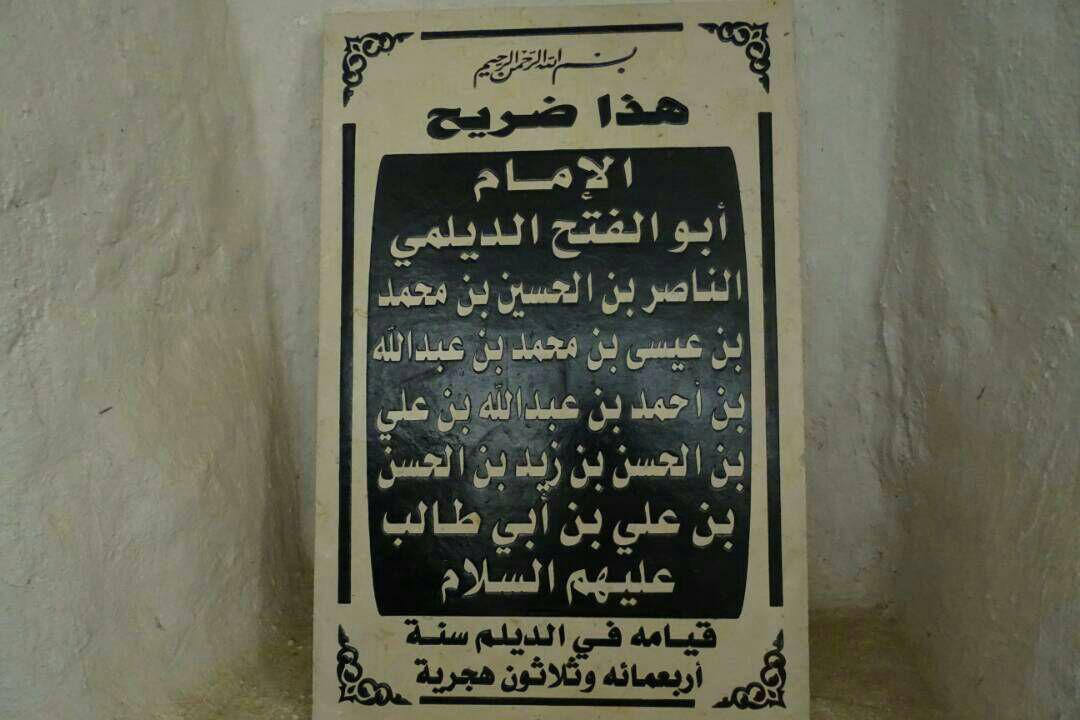 بسم الله الرحمن الرحيم
هذا ضريح
الإمام
أبو الفتح الديلمي
الناصر بن الحسين بن محمد
بن عيسى بن محمد بن عبدالله
بن أحمد بن عبدالله بن علي
بن الحسن بن زيد بن الحسن
بن علي بن أبي طالب
عليهم السلام
قيامه في الديلم سنة
أربعمائه وثلاثون هجرية